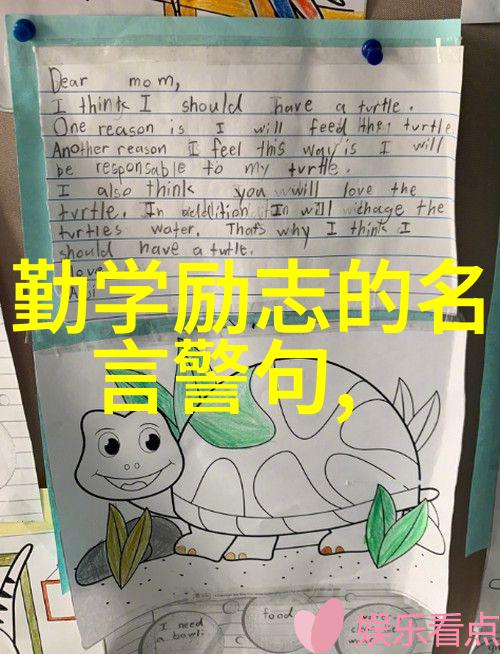 Dear mom,
I think I should have a turtle.
One reason is I will feed the turtle.
Another reason I feel this way is I will
be responsable to my turtle.
I also think you will love the
turtle. In addition I will chage the
turtles water. That's why I think I
should have a turtle.
love
勤学励志的名
言警句,
I need
a bowl
food
娱乐看点